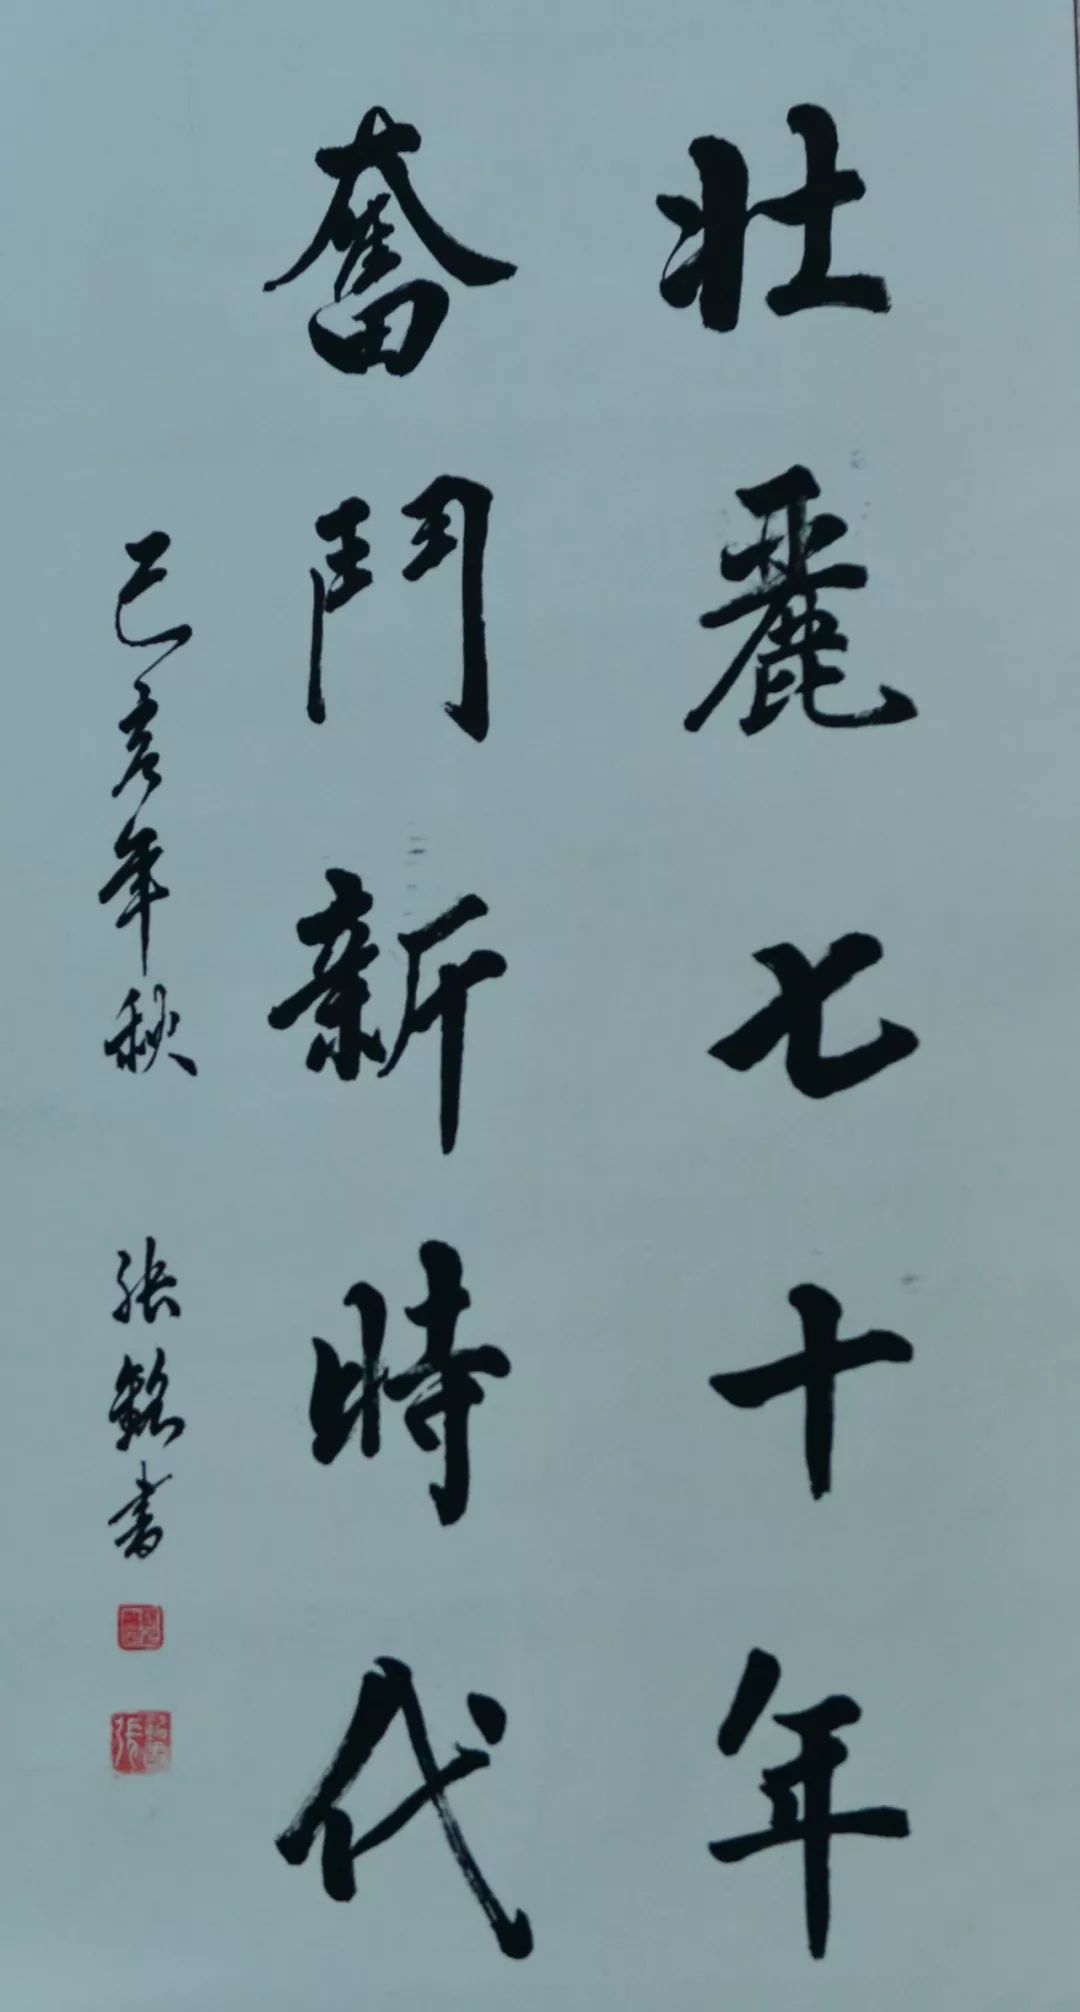 壯麗七十年
奮鬥新時代
己亥年秋
張銘書